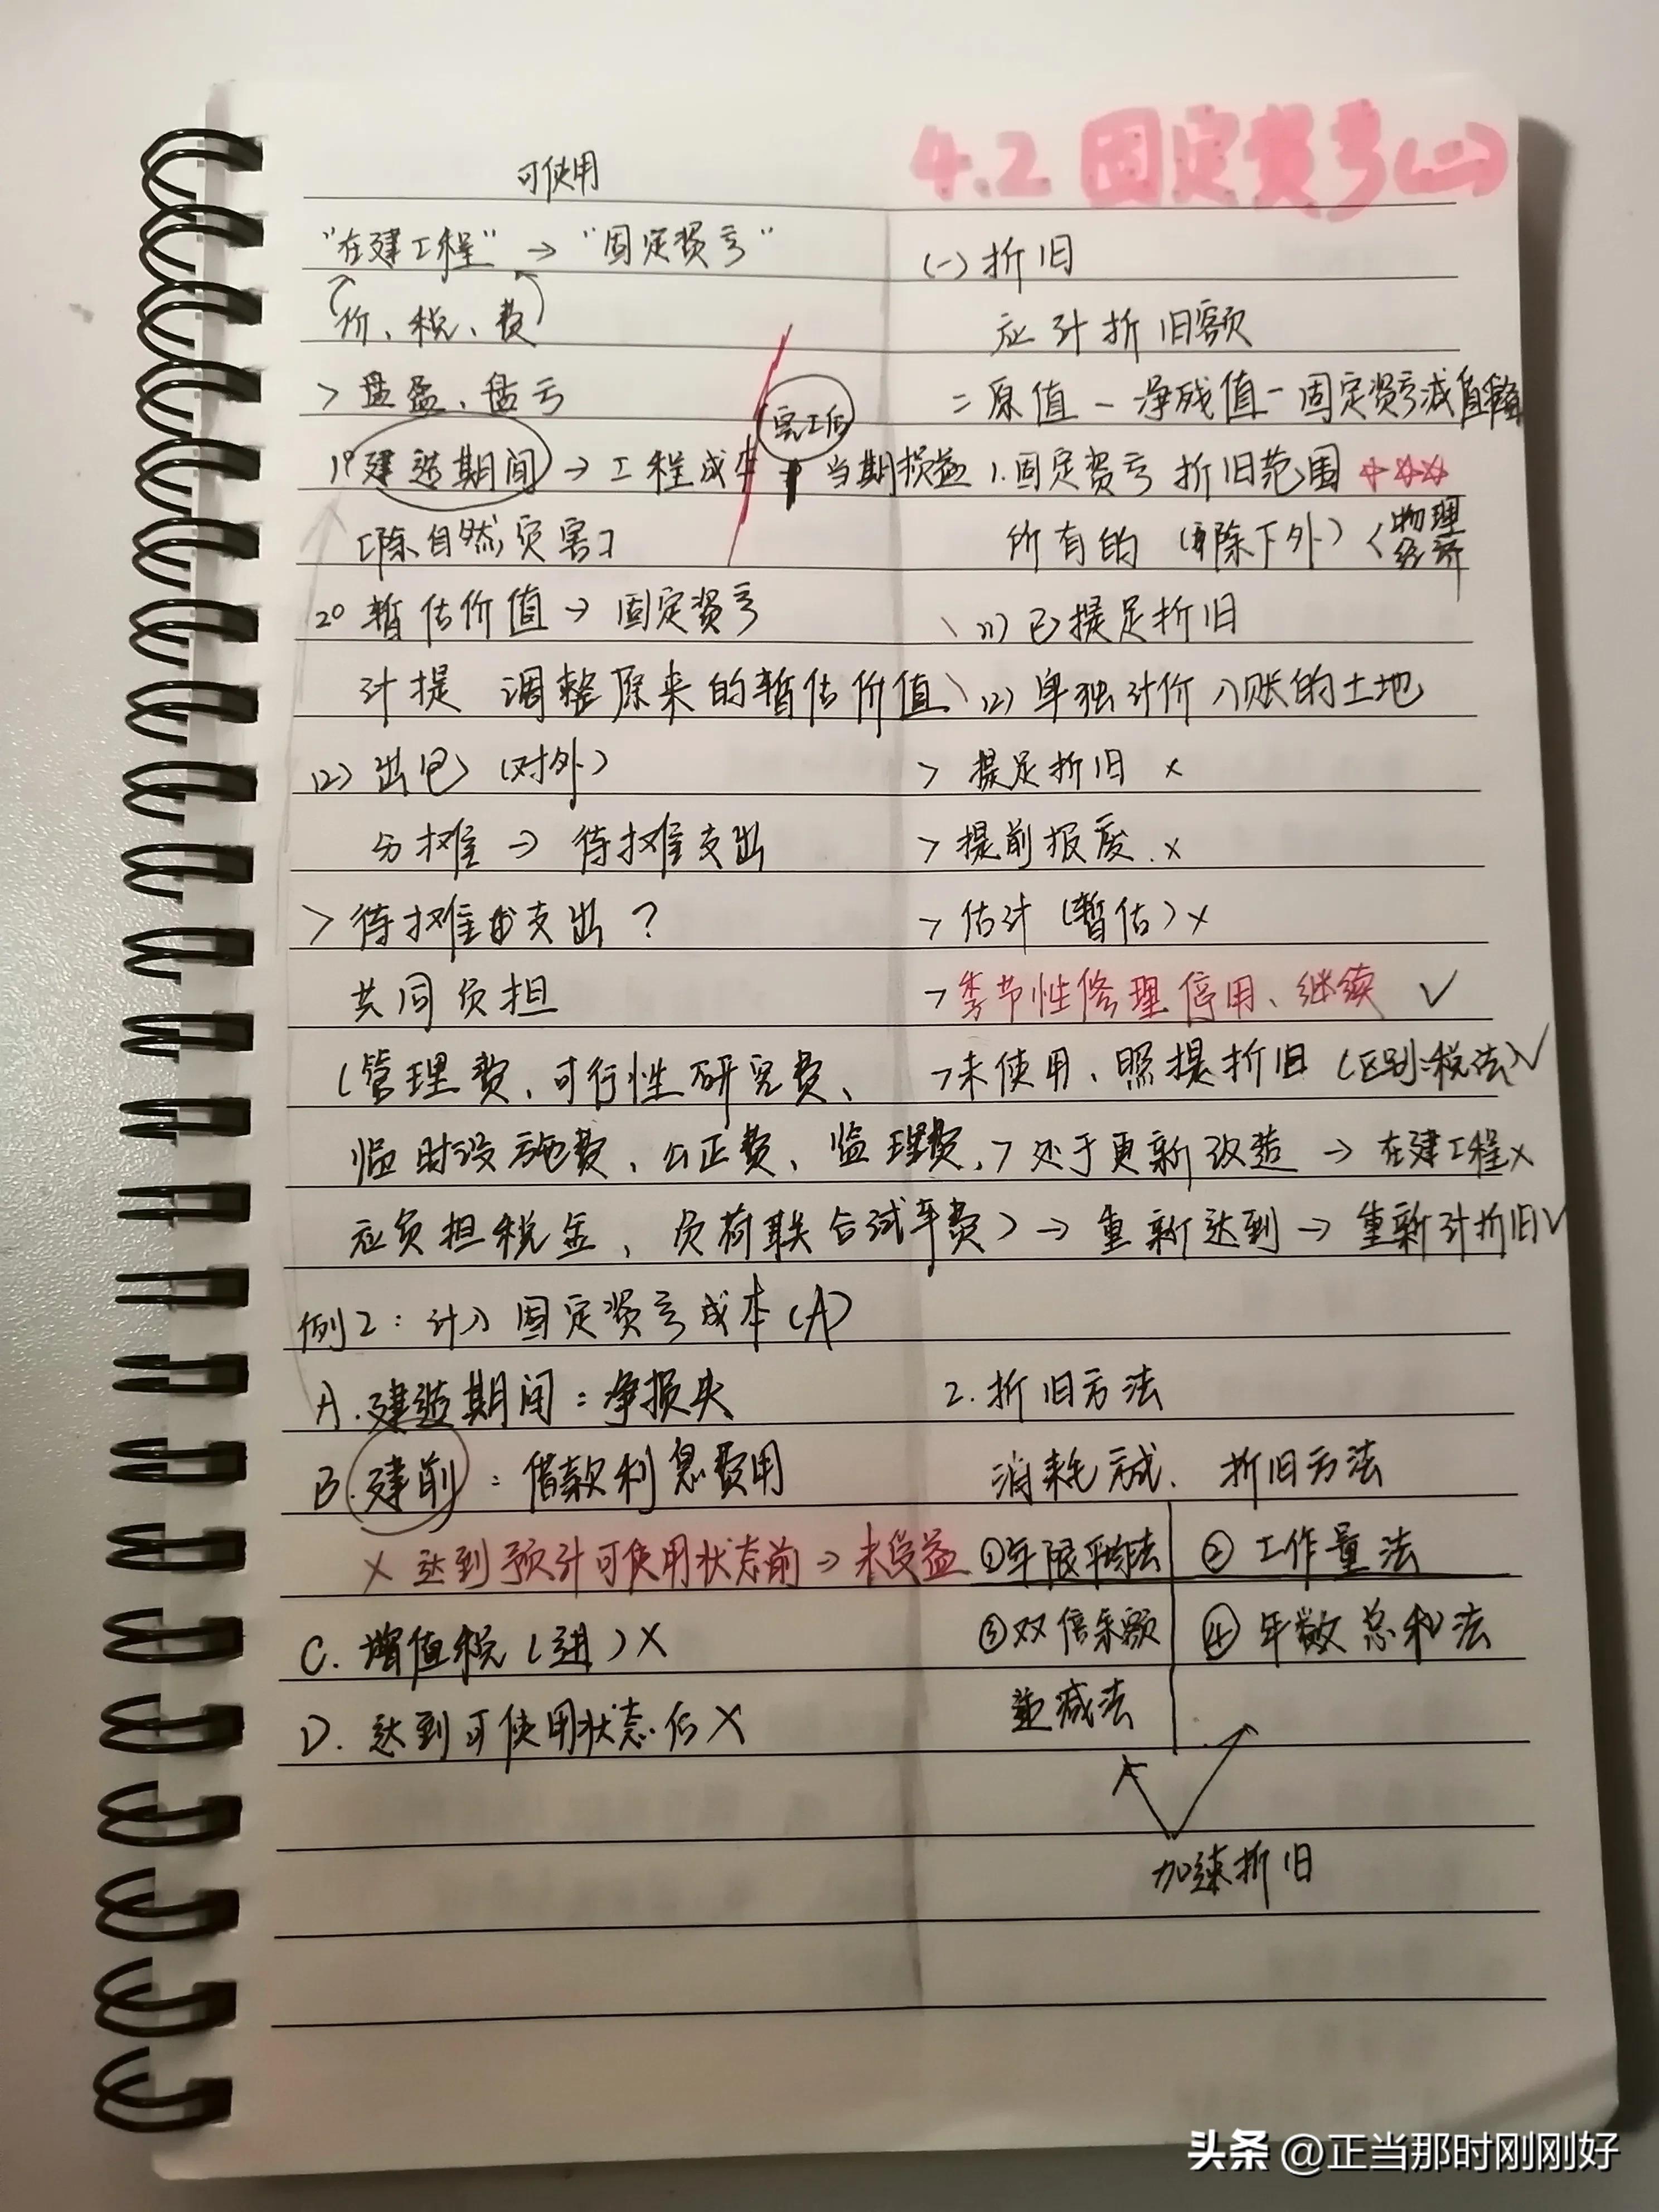 4.2 固定资产(二)
可使用
"在建工程" → "固定资产"
价、税、费
> 盘盈、盘亏
1° 建造期间 → 工程成本
完工后
当期损益
[除自然灾害]
2° 暂估价值 → 固定资产
计提 调整原来的暂估价值
(2) 出包 (对外)
分摊 → 待摊支出
> 待摊支出 ?
共同负担
(管理费、可行性研究费、
临时设施费、公正费、监理费、
应负担税金、负荷联合试车费)
例2: 计入固定资产成本 (A)
A. 建造期间: 净损失
B. 建前: 借款利息费用
× 达到预计可使用状态前 → 未受益
C. 增值税 (进) ×
D. 达到可使用状态后 ×
(一) 折旧
应计折旧额
= 原值 - 净残值 - 固定资产减值准备
1. 固定资产折旧范围 ☆☆☆
所有的 (除下外) < 物理
经济
(1) 已提足折旧
(2) 单独计价入账的土地
> 提足折旧 ×
> 提前报废 ×
> 估计 (暂估) ×
> 季节性修理停用、继续 ✓
> 未使用、照提折旧 (区别:税法) ✓
> 处于更新改造 → 在建工程 ×
→ 重新达到 → 重新计折旧 ✓
2. 折旧方法
消耗方式、折旧方法
① 年限平均法 ② 工作量法
③ 双倍余额 ④ 年数总和法
递减法
加速折旧
头条 @正当那时刚刚好